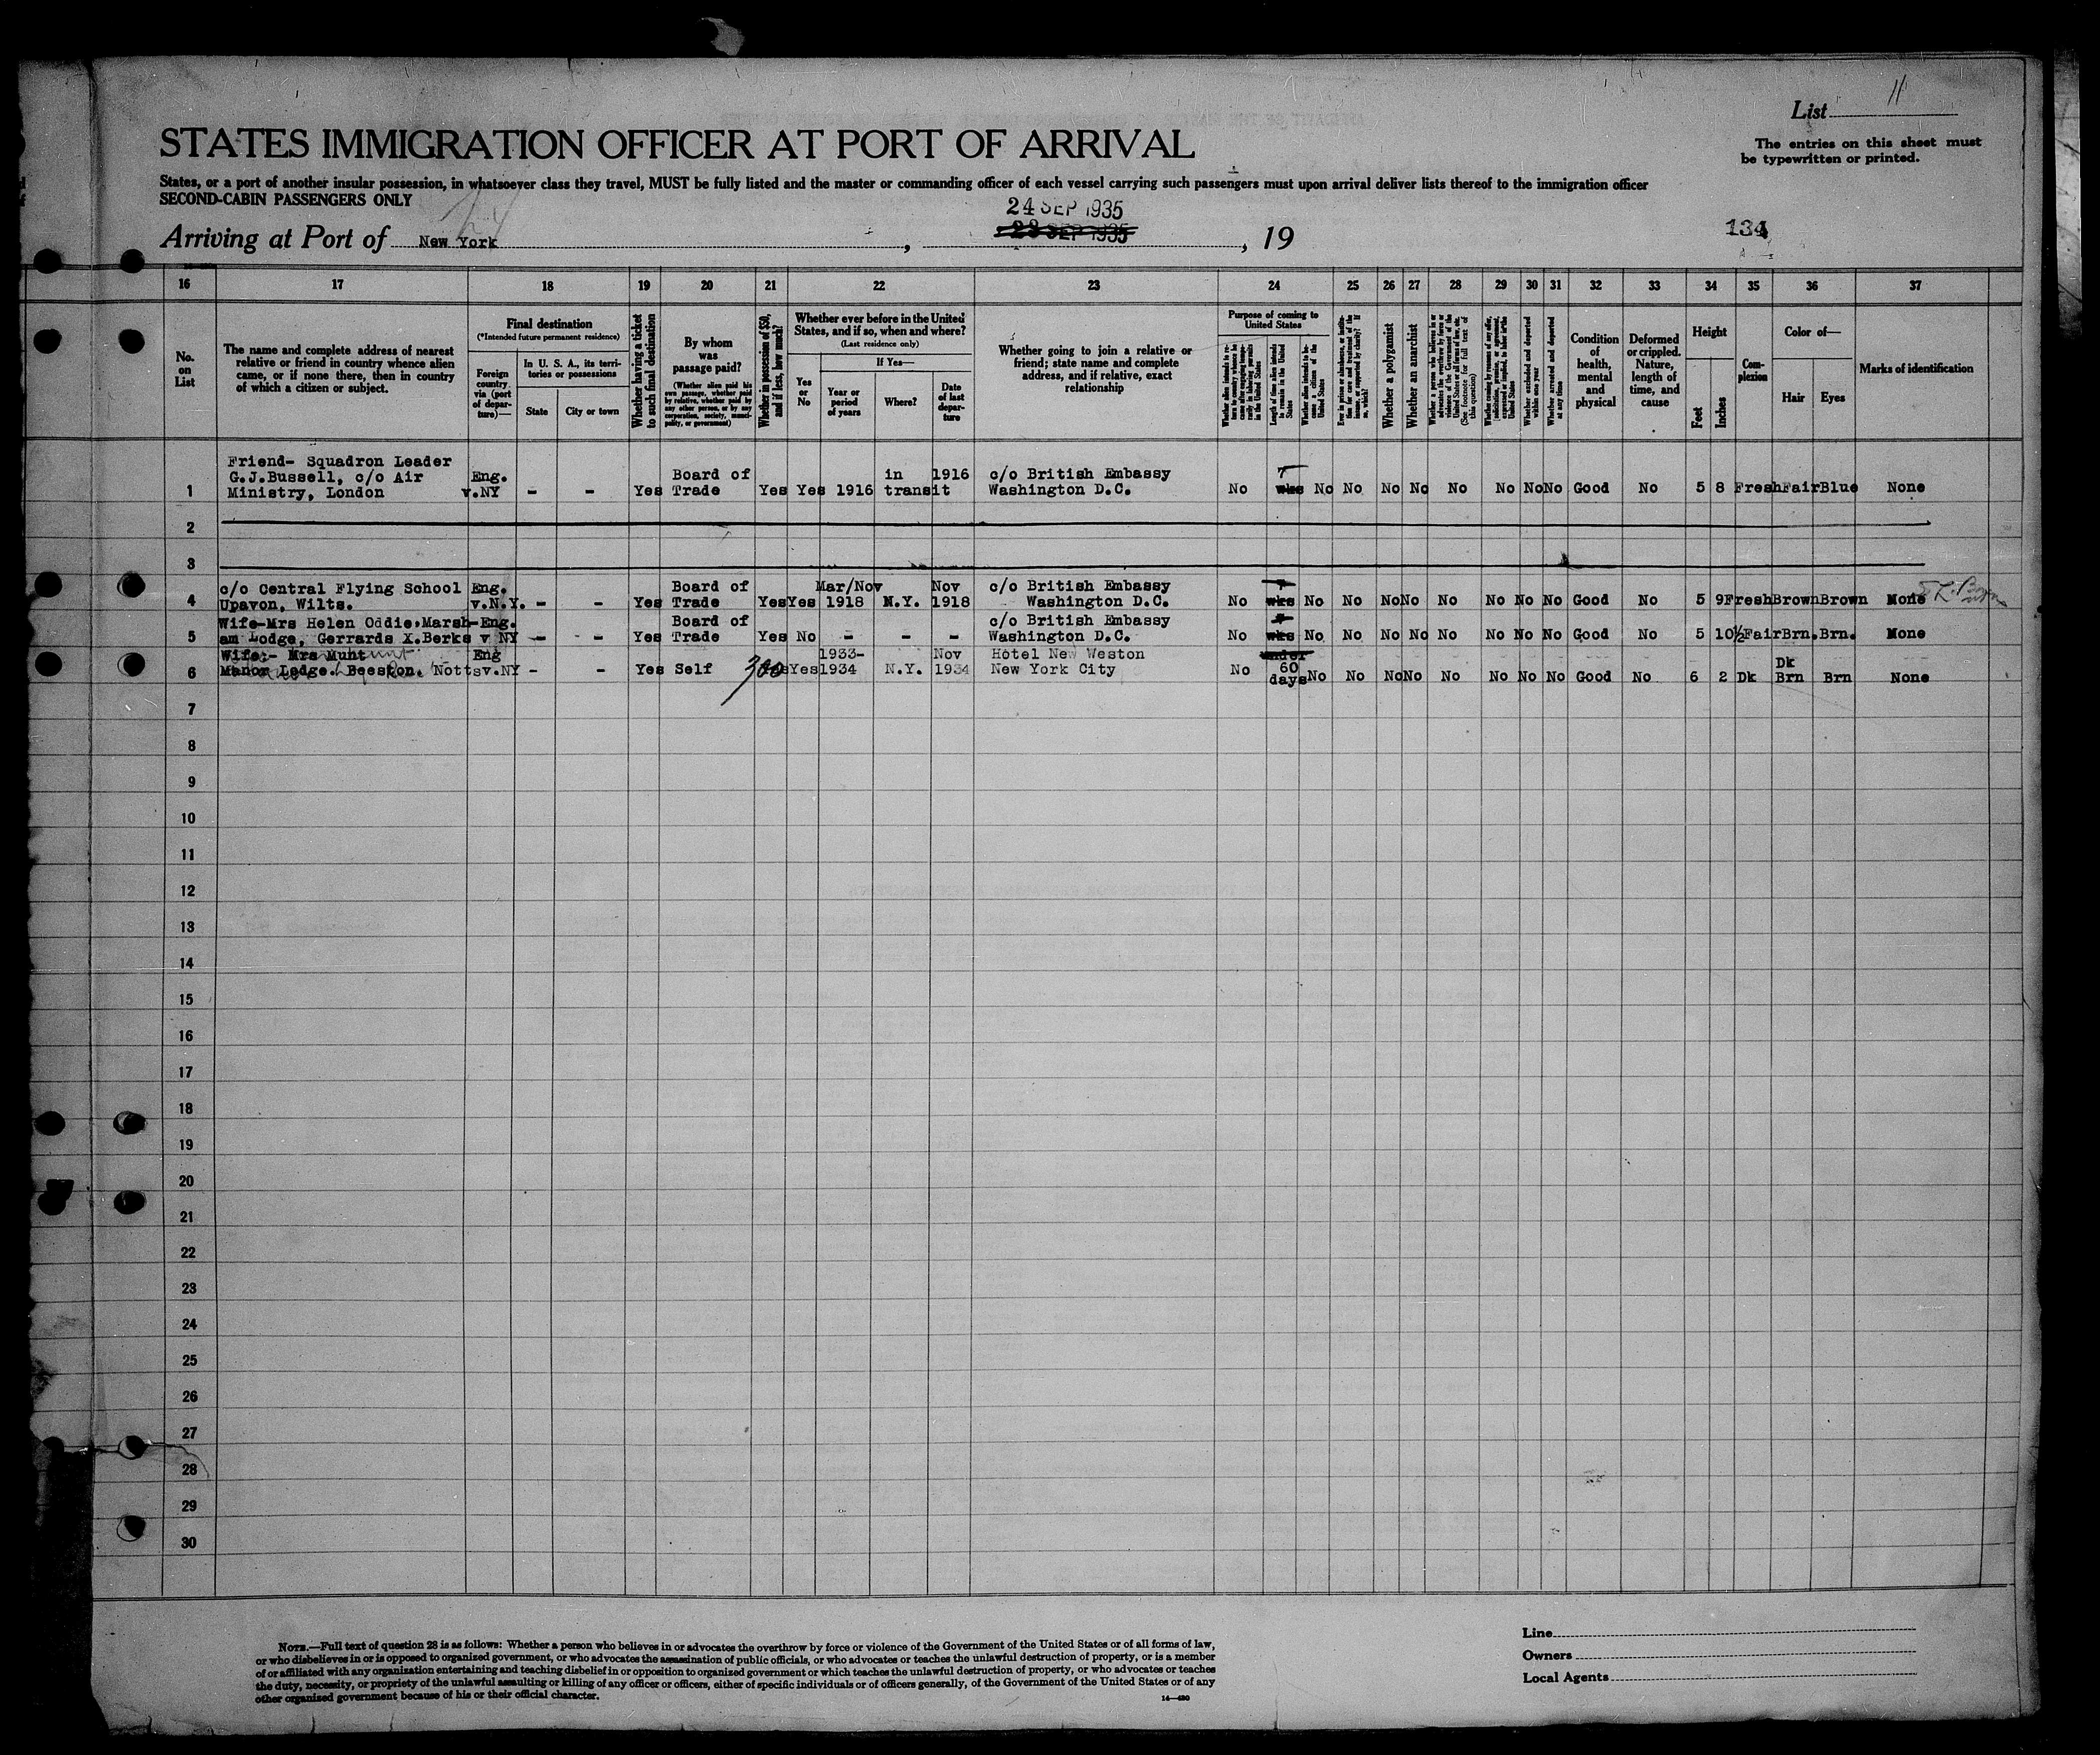 List 11
The entries on this sheet must
be typewritten or printed.
STATES IMMIGRATION OFFICER AT PORT OF ARRIVAL
States, or a port of another insular possession, in whatsoever class they travel, MUST be fully listed and the master or commanding officer of each vessel carrying such passengers must upon arrival deliver lists thereof to the immigration officer
SECOND-CABIN PASSENGERS ONLY
24 SEP 1935
Arriving at Port of New York , 23 SEP 1935 , 19
134
16 17 18 19 20 21 22 23 24 25 26 27 28 29 30 31 32 33 34 35 36 37
No.
on
List
The name and complete address of nearest
relative or friend in country whence alien
came, or if none there, then in country
of which a citizen or subject.
Final destination
(*Intended future permanent residence)
Foreign
country
via (port
of depar-
ture)—
In U. S. A., its terri-
tories or possessions
State
City or town
Whether having a ticket
to such final destination
By whom
was
passage paid?
(Whether alien paid his
own passage, whether paid
by relative, whether paid by
any other person, or by any
corporation, society, munici-
pality, or government)
Whether in possession of $50,
and if less, how much?
Whether ever before in the United
States, and if so, when and where?
(Last residence only)
Yes
or
No
If Yes—
Year or
period
of years
Where?
Date
of last
depar-
ture
Whether going to join a relative or
friend; state name and complete
address, and if relative, exact
relationship
Purpose of coming to
United States
Length of time alien intends
to remain in the United
States
Whether alien intends to be-
come a citizen of the
United States
Whether a polygamist
Whether an anarchist
(See footnote for full text of
this question)
Whether excluded and deported
within one year
Whether arrested and deported
at any time
Condition
of
health,
mental
and
physical
Deformed
or crippled.
Nature,
length of
time, and
cause
Height
Feet
Inches
Com-
plexion
Color of—
Hair
Eyes
Marks of identification
Friend- Squadron Leader
G.J.Bussell, c/o Air Eng. Board of in 1916 c/o British Embassy 7
1 Ministry, London v.NY - - Yes Trade Yes Yes 1916 transit Washington D.C. No wks No No No No No No No No Good No 5 8 Fresh Fair Blue None
2
3
c/o Central Flying School Eng. Board of Mar/Nov Nov c/o British Embassy 7
4 Upavon, Wilts. v.N.Y. - - Yes Trade Yes Yes 1918 N.Y. 1918 Washington D.C. No wks No No No No No No No No Good No 5 9 Fresh Brown Brown None
Wife-Mrs Helen Oddie,Marsh-Eng. Board of c/o British Embassy 7
5 am Lodge, Gerrards X.Berks v NY - - Yes Trade Yes No - - - Washington D.C. No wks No No No No No No No No Good No 5 10½ Fair Brn. Brn. None
Wife:- Mrs Munt Eng 1933- Nov Hotel New Weston under Dk
6 Manor Lodge. Beeston. Notts v.NY - - Yes Self 300 Yes 1934 N.Y. 1934 New York City No 60 days No No No No No No No No Good No 6 2 Dk Brn Brn None
7
8
9
10
11
12
13
14
15
16
17
18
19
20
21
22
23
24
25
26
27
28
29
30
NOTE.—Full text of question 28 is as follows: Whether a person who believes in or advocates the overthrow by force or violence of the Government of the United States or of all forms of law,
or who disbelieves in or is opposed to organized government, or who advocates the assassination of public officials, or who advocates or teaches the unlawful destruction of property, or is a member
of or affiliated with any organization entertaining and teaching disbelief in or opposition to organized government or which teaches the unlawful destruction of property, or who advocates or teaches
the duty, necessity, or propriety of the unlawful assaulting or killing of any officer or officers, either of specific individuals or of officers generally, of the Government of the United States or of any
other organized government because of his or their official character.
14—480
Line
Owners
Local Agents